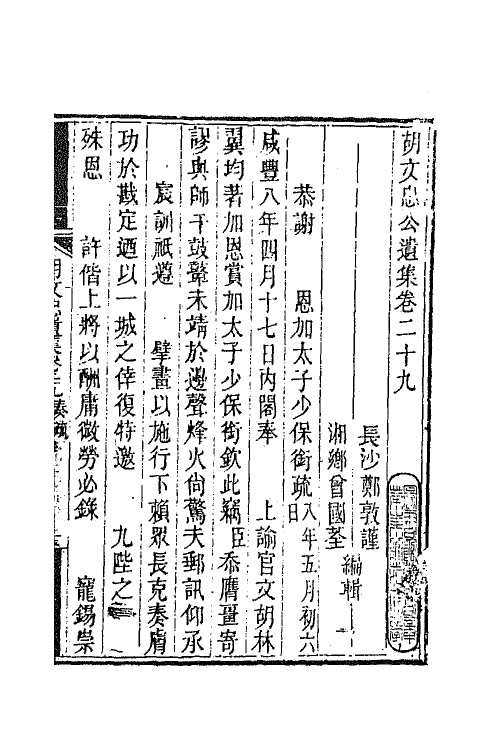 胡文忠公遺集卷二十九
長沙鄭敦謹
湘鄉曾國荃
編輯
恭謝 恩加太子少保銜疏八年五月初六日
咸豐八年四月十七日內閣奉 上諭官文胡林
翼均著加恩賞加太子少保銜欽此竊臣忝膺畺寄
謬與師干鼓鼙未靖於邊聲烽火尙驚夫郵訊仰承
宸訓祇遵 擘畫以施行下賴眾長克奏膚
功於戡定迺以一城之倖復特邀 九陛之
殊恩 許偕上將以酬庸微勞必錄 寵錫崇